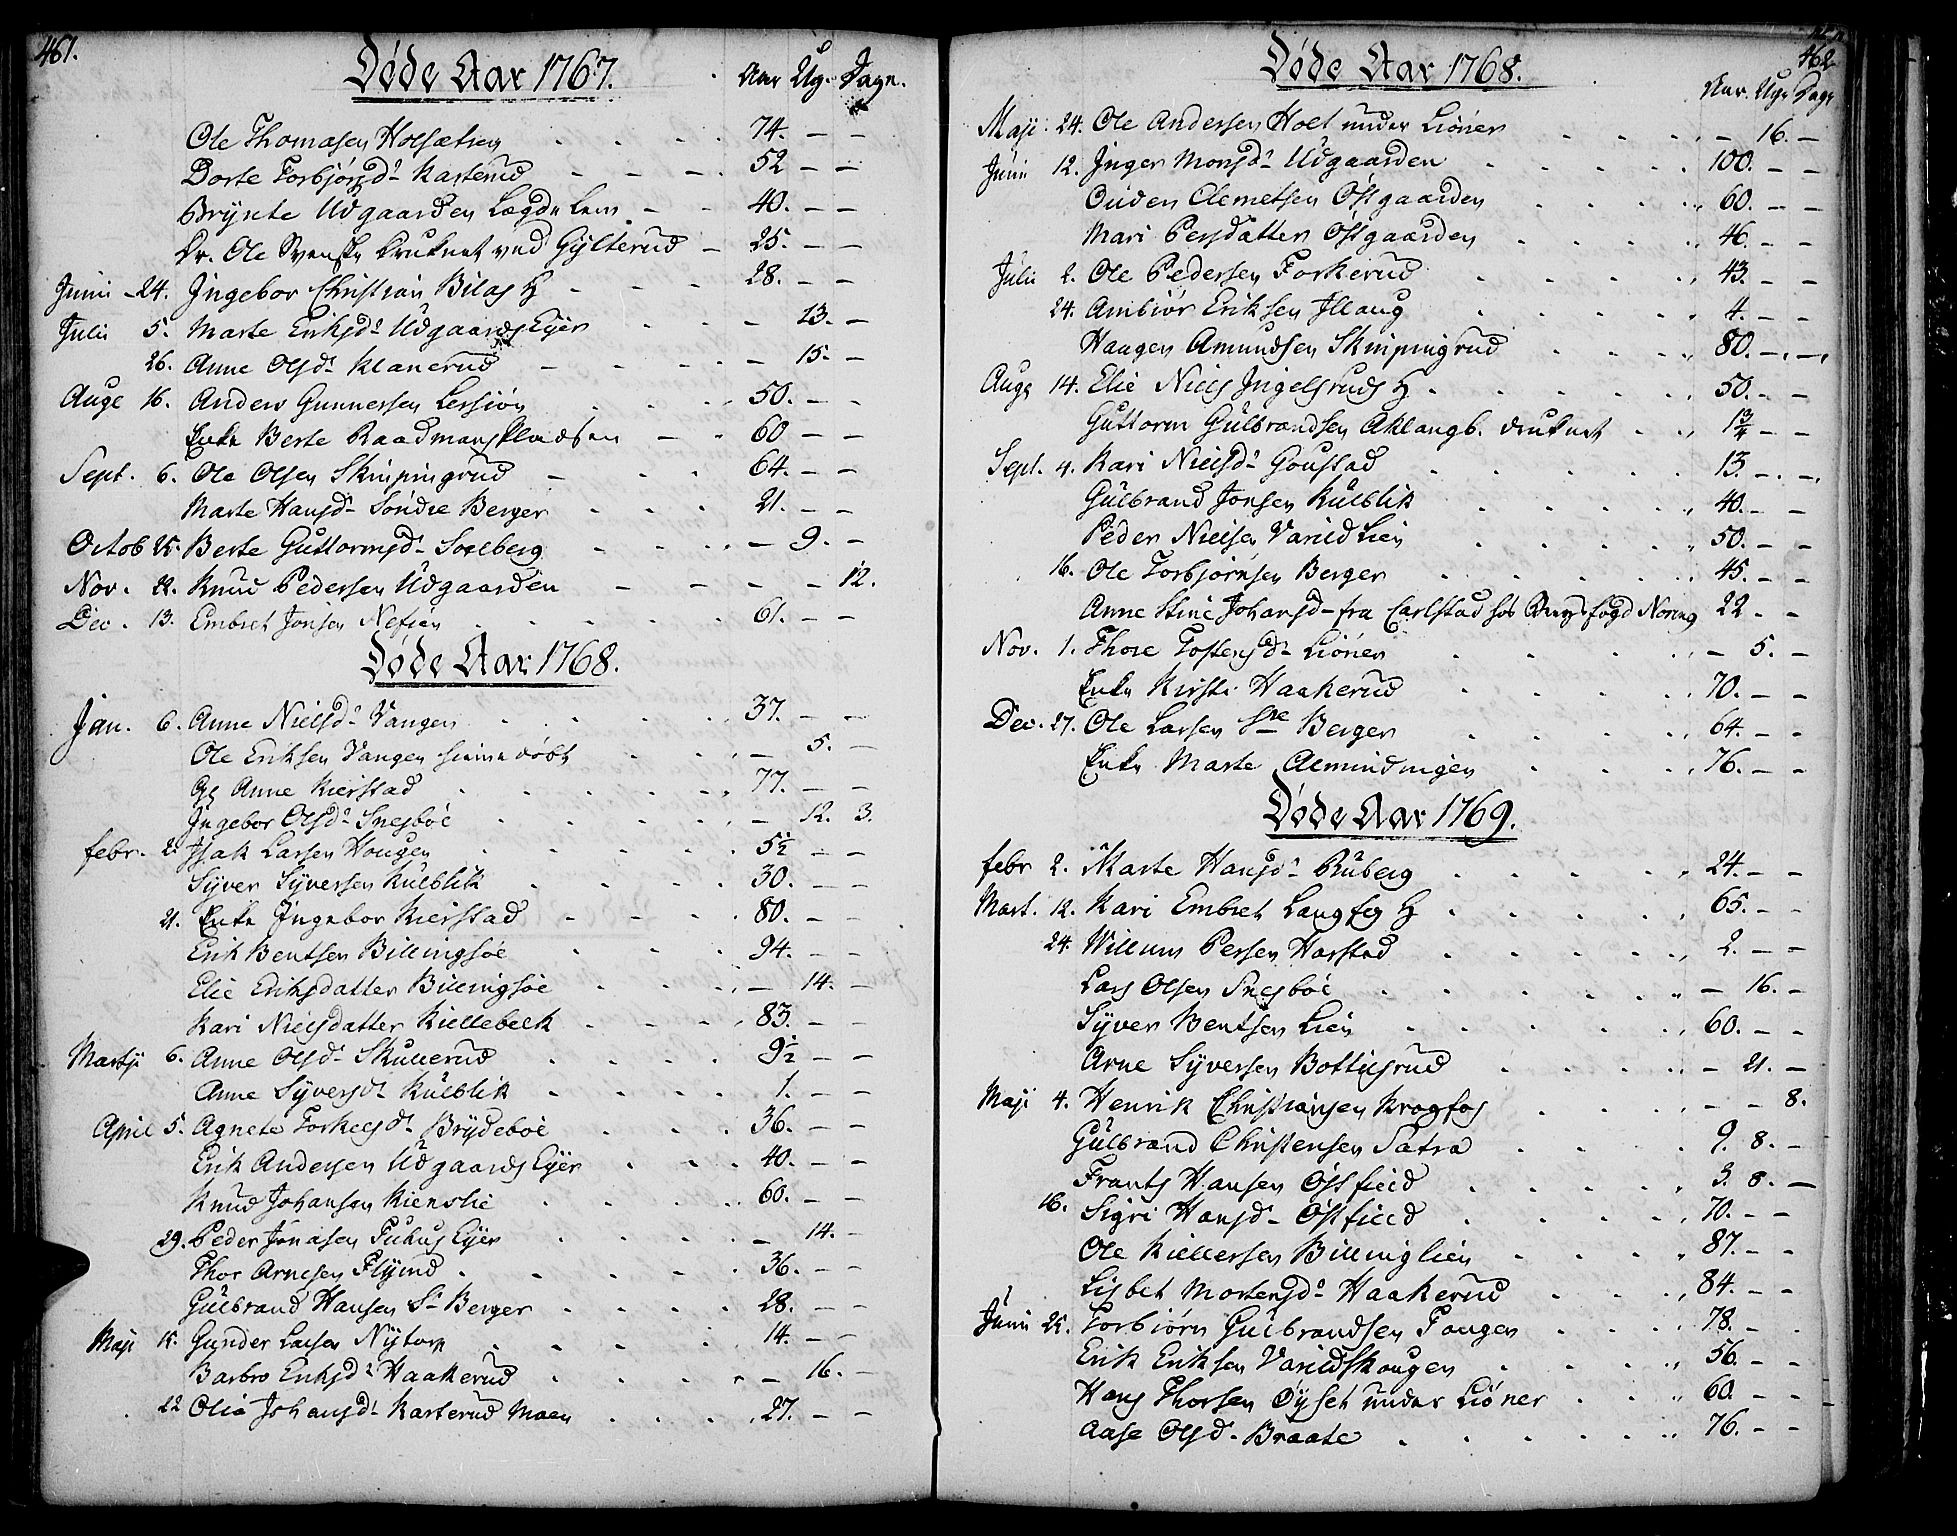 461.
Døde Aar 1767. Aar Ug. Dage.
Ole Thomasen Holsætren 74. – –
Dorte Torbjørsd: Karterud 52 – –
Brynte Udgaarden Lægde Lem 40. – –
Dr. Ole Svenske druknet ved Gylterud – 25. – –
Junii – 24. Ingebor Christian Bilas H 28. – –
Julii 5. Marte Eriksd: Udgaards Eyer – 13. –
26. Anne Olsd: Klanerud – 15. –
Auge 16. Anders Gunnersen Lersiøn 50. – –
Enke Berte Raadmans Pladsen 60 – –
Sept. 6. Ole Olsen Skinpingrud 64. – –
Marte Hansd: Søndre Berger 21. – –
Octob 25. Berte Guttormsd: Soelberg – 9. –
Nov. 22. Knud Pedersen Udgaarden – – 12.
Dec. 13. Embret Jonsen Nefien 61. – –
Døde Aar 1768.
Jan. 6. Anne Nielsd: Vangen 37. – –
Ole Eriksen Vangen hiemedøbt – 5. –
Anne Kierstad 77. – –
Ingebor Olsd: Snesbøe – 12. 3.
febr. 2. Isak Larsen Hougen 5½ – –
Syver Syversen Kulblik 30. – –
21. Enke Ingebor Kierstad 80. – –
Erik Bentsen Billingsøe 94. – –
Elie Eriksdatter Billingsøe – 14. –
Kari Nielsdatter Kiellebeek 83. – –
Martji 6. Anne Olsd: Skullerud 9½ – –
Anne Syversd: Kulblik 1. – –
April 5. Agnete Torkelsd: Brydebøe 36. – –
Erik Andersen Udgaards Eyer 40. – –
Knud Johansen Kienslie 60. – –
29. Peder Jonasen Fuhus Eyer – 14. –
Thor Arnesen Flymd 36. – –
Gulbrand Hansen Sr Berger 28. – –
Maji 15. Gunder Larsen Nytorp 14. – –
Barbro Eriksd: Haakerud – 16. –
22 Olia Johansd: Karterud Moen 27. – –
462
Døde Aar 1768. Aar. Uge Dage
Maji 24. Ole Andersen Hoel under Liøner – 16. –
Junii 12. Inger Monsd: Udgaarden 100. – –
Ouden Clemetsen Østgaarden 60. – –
Mari Persdatter Østgaarden 46. – –
Julii 2. Ole Pedersen Forkerud 43. – –
24. Ambiør Eriksen Illaug 4. – –
Haagen Amundsen Skinpingrud 80. – –
Auge 14. Elie Niels Ingelsruds H 50. – –
Guttorm Gulbrandsen Aklangb. druknet 1¾ – –
Sept. 4. Kari Nielsd: Goustad 13. – –
Gulbrand Jonsen Kulblik 40. – –
Peder Nielsen Varild Lien 50. – –
16. Ole Torbjørnsen Berger 45. – –
Anne Stine Johansd – fra Carlstad hos Bergsfogd Noring 22 – –
Nov. 1. Thore Tostensd: Liøner – 5. –
Enke Kirsti Haakerud 70. – –
Dec. 27. Ole Larsen Sre Berger 64. – –
Enke Marte Almindingen 76. – –
Døde Aar 1769.
febr 2. Marte Hansd: Ruberg 24. – –
Mart. 12. Kari Embret Langfos H 65. – –
24. Willum Persen Harstad 2. – –
Lars Olsen Snesbøe – 16. –
Syver Bentsen Lien 60. – –
Arne Syversen Bottilsrud – 21. –
Maji 4. Henrik Christiansen Kragfos – – 8.
Gulbrand Christensen Sætra 9. 8. –
Frants Hansen Østfield 3. 8. –
16. Sigri Hansd – Østfield 70. – –
Ole Kiellersen Billinglien 87. – –
Lisbet Mortensd: Haakerud 84. – –
Junii 25. Torbiørn Gulbrandsen Tangen 78. –
Erik Eriksen Varildskougen 56. – –
Hans Thorsen Øyset under Liøner 60. – –
Aase Olsd – Braate 76. – –